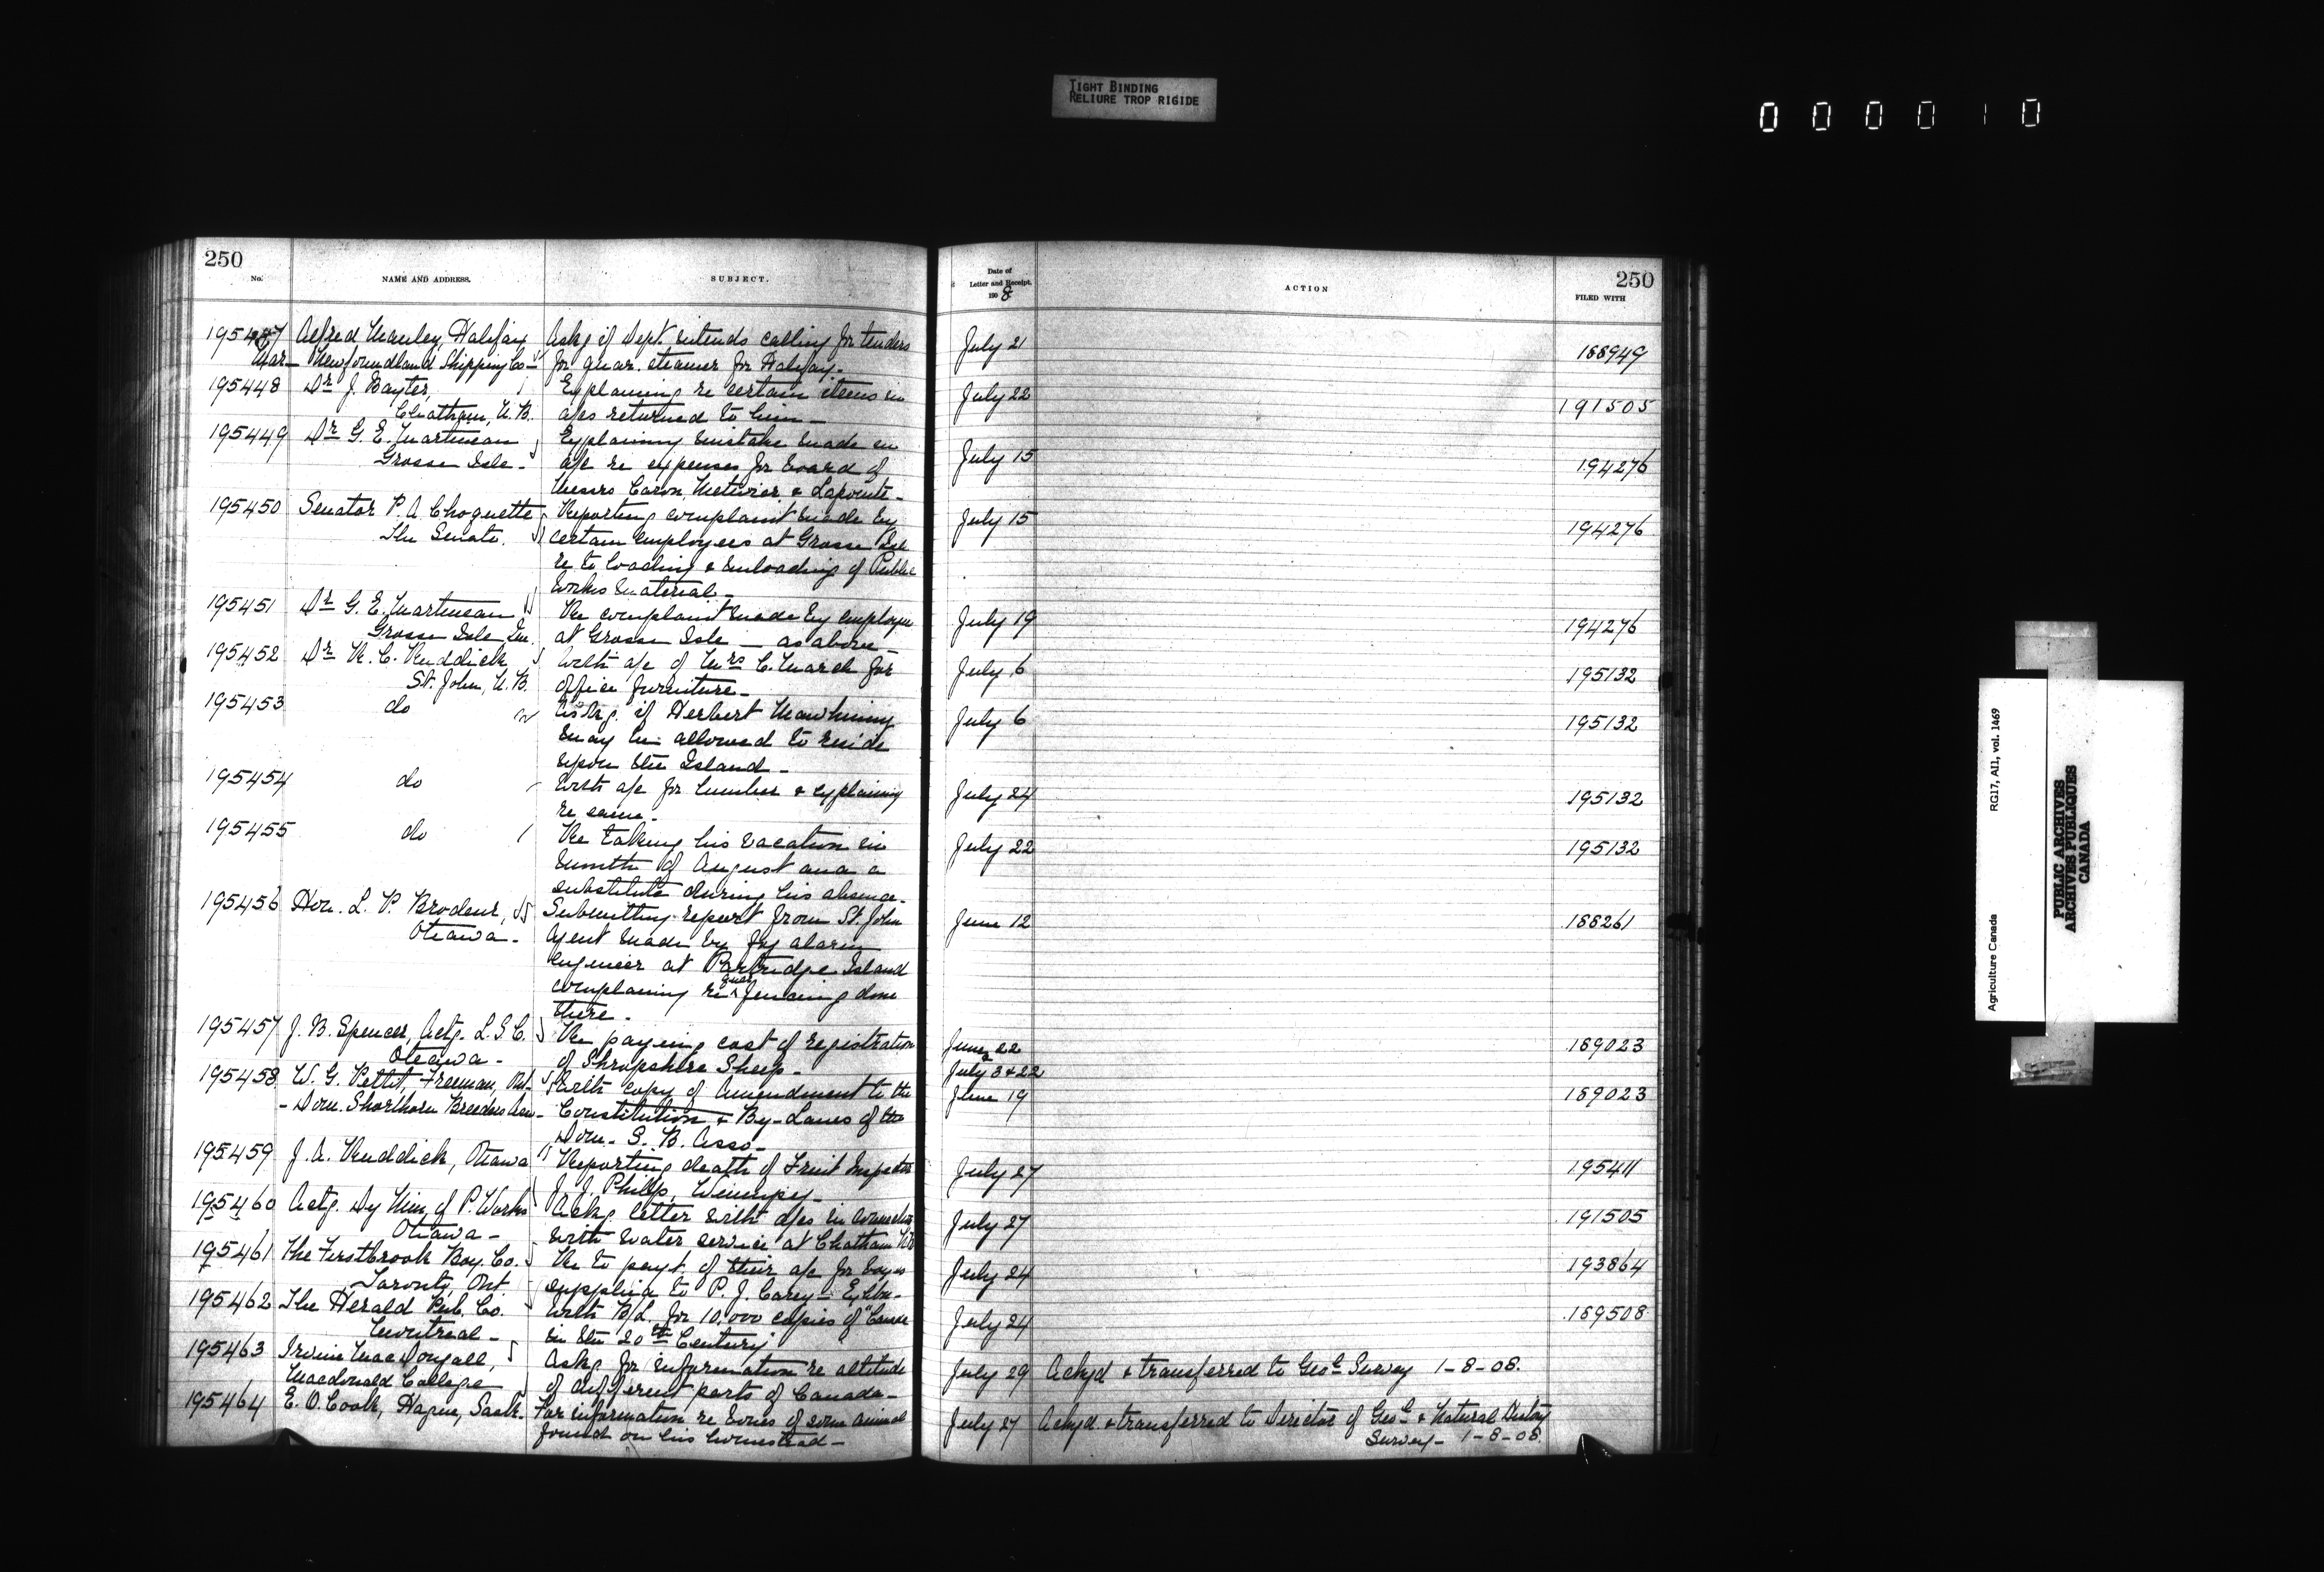 TIGHT BINDING
RELIURE TROP RIGIDE
000010
250
No. NAME AND ADDRESS. SUBJECT.
195447 Alfred Manley, Halifax Askg if Dept intends calling for tenders
Mgr— Newfoundland Shipping Co— for quar. steamer for Halifax—
195448 Dr J. Baxter, Explaining re certain items in
Chatham, N.B. a/cs returned to him—
195449 Dr G. E. Martineau Explaining mistake made in
Grosse Isle— a/c re expenses for board of
Messrs Caron, Metivier & Lapointe—
195450 Senator P. A. Choquette Reporting complaint made by
The Senate. certain employees at Grosse Isle
re to loading & unloading of Public
Works material—
195451 Dr G. E. Martineau Re complaint made by employee
Grosse Isle, Que. at Grosse Isle — as above—
195452 Dr R. C. Ruddick With a/c of Mrs C. March for
St. John, N.B. office furniture—
195453 do Askg. if Herbert Mawhinny
may be allowed to reside
upon the Island—
195454 do With a/c for lumber & explaining
re same—
195455 do Re taking his vacation in
month of August and a
substitute during his absence—
195456 Hon. L. P. Brodeur, Submitting report from St. John
Ottawa— Agent made by fog alarm
engineer at Partridge Island
complaining re quar fencing done
there.
195457 J. B. Spencer, Actg. L.S.C. Re paying cost of registration
Ottawa— of Shropshire Sheep—
195458 W. G. Pettit, Freeman, Ont— With copy of Amendment to the
— Dom. Shorthorn Breeders Assn— Constitution & By-Laws of the
Dom. S. B. Asso—
195459 J. A. Ruddick, Ottawa Reporting death of Fruit Inspector
J. J. Philp, Winnipeg—
195460 Actg. Dy Min, of P. Works Ackg. letter with a/cs in connection
Ottawa— with water service at Chatham NB
195461 The Firstbrook Box Co. Re to payt. of their a/c for boxes
Toronto, Ont supplied to P. J. Carey— Exbn—
195462 The Herald Pub. Co. With B/L. for 10,000 copies of "Canada
Montreal— in the 20th Century
195463 Irvine MacDougall, Askg for information re altitude
Macdonald College of different parts of Canada—
195464 E. O. Cook, Hague, Sask— For information re bones of some animal
found on his homestead—
250
Date of
Letter and Receipt.
1908
ACTION
FILED WITH
July 21 188949
July 22 191505
July 15 194276
July 15 194276
July 19 194276
July 6 195132
July 6 195132
July 24 195132
July 22 195132
June 12 188261
June 22 189023
& July 3 & 22
June 19 189023
July 27 195411
July 27 191505
July 24 193864
July 24 189508
July 29 Ackgd & transferred to Geol Survey 1-8-08.
July 27 Ackgd. & transferred to Director of Geol & Natural History
Survey— 1-8-08.
Agriculture Canada RG17, AI1, vol. 1469
PUBLIC ARCHIVES
ARCHIVES PUBLIQUES
CANADA